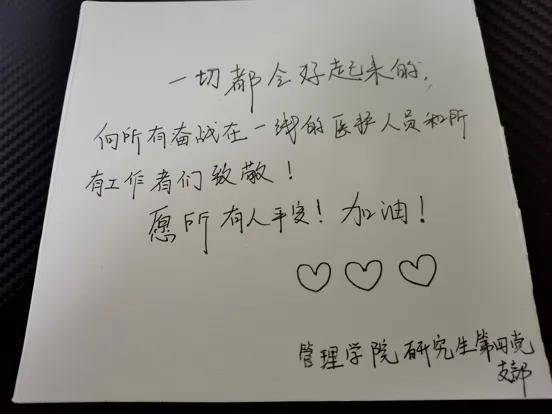 一切都会好起来的，
向所有奋战在一线的医护人员和所
有工作者们致敬！
愿所有人平安！加油！
管理学院研究生第四党
支部